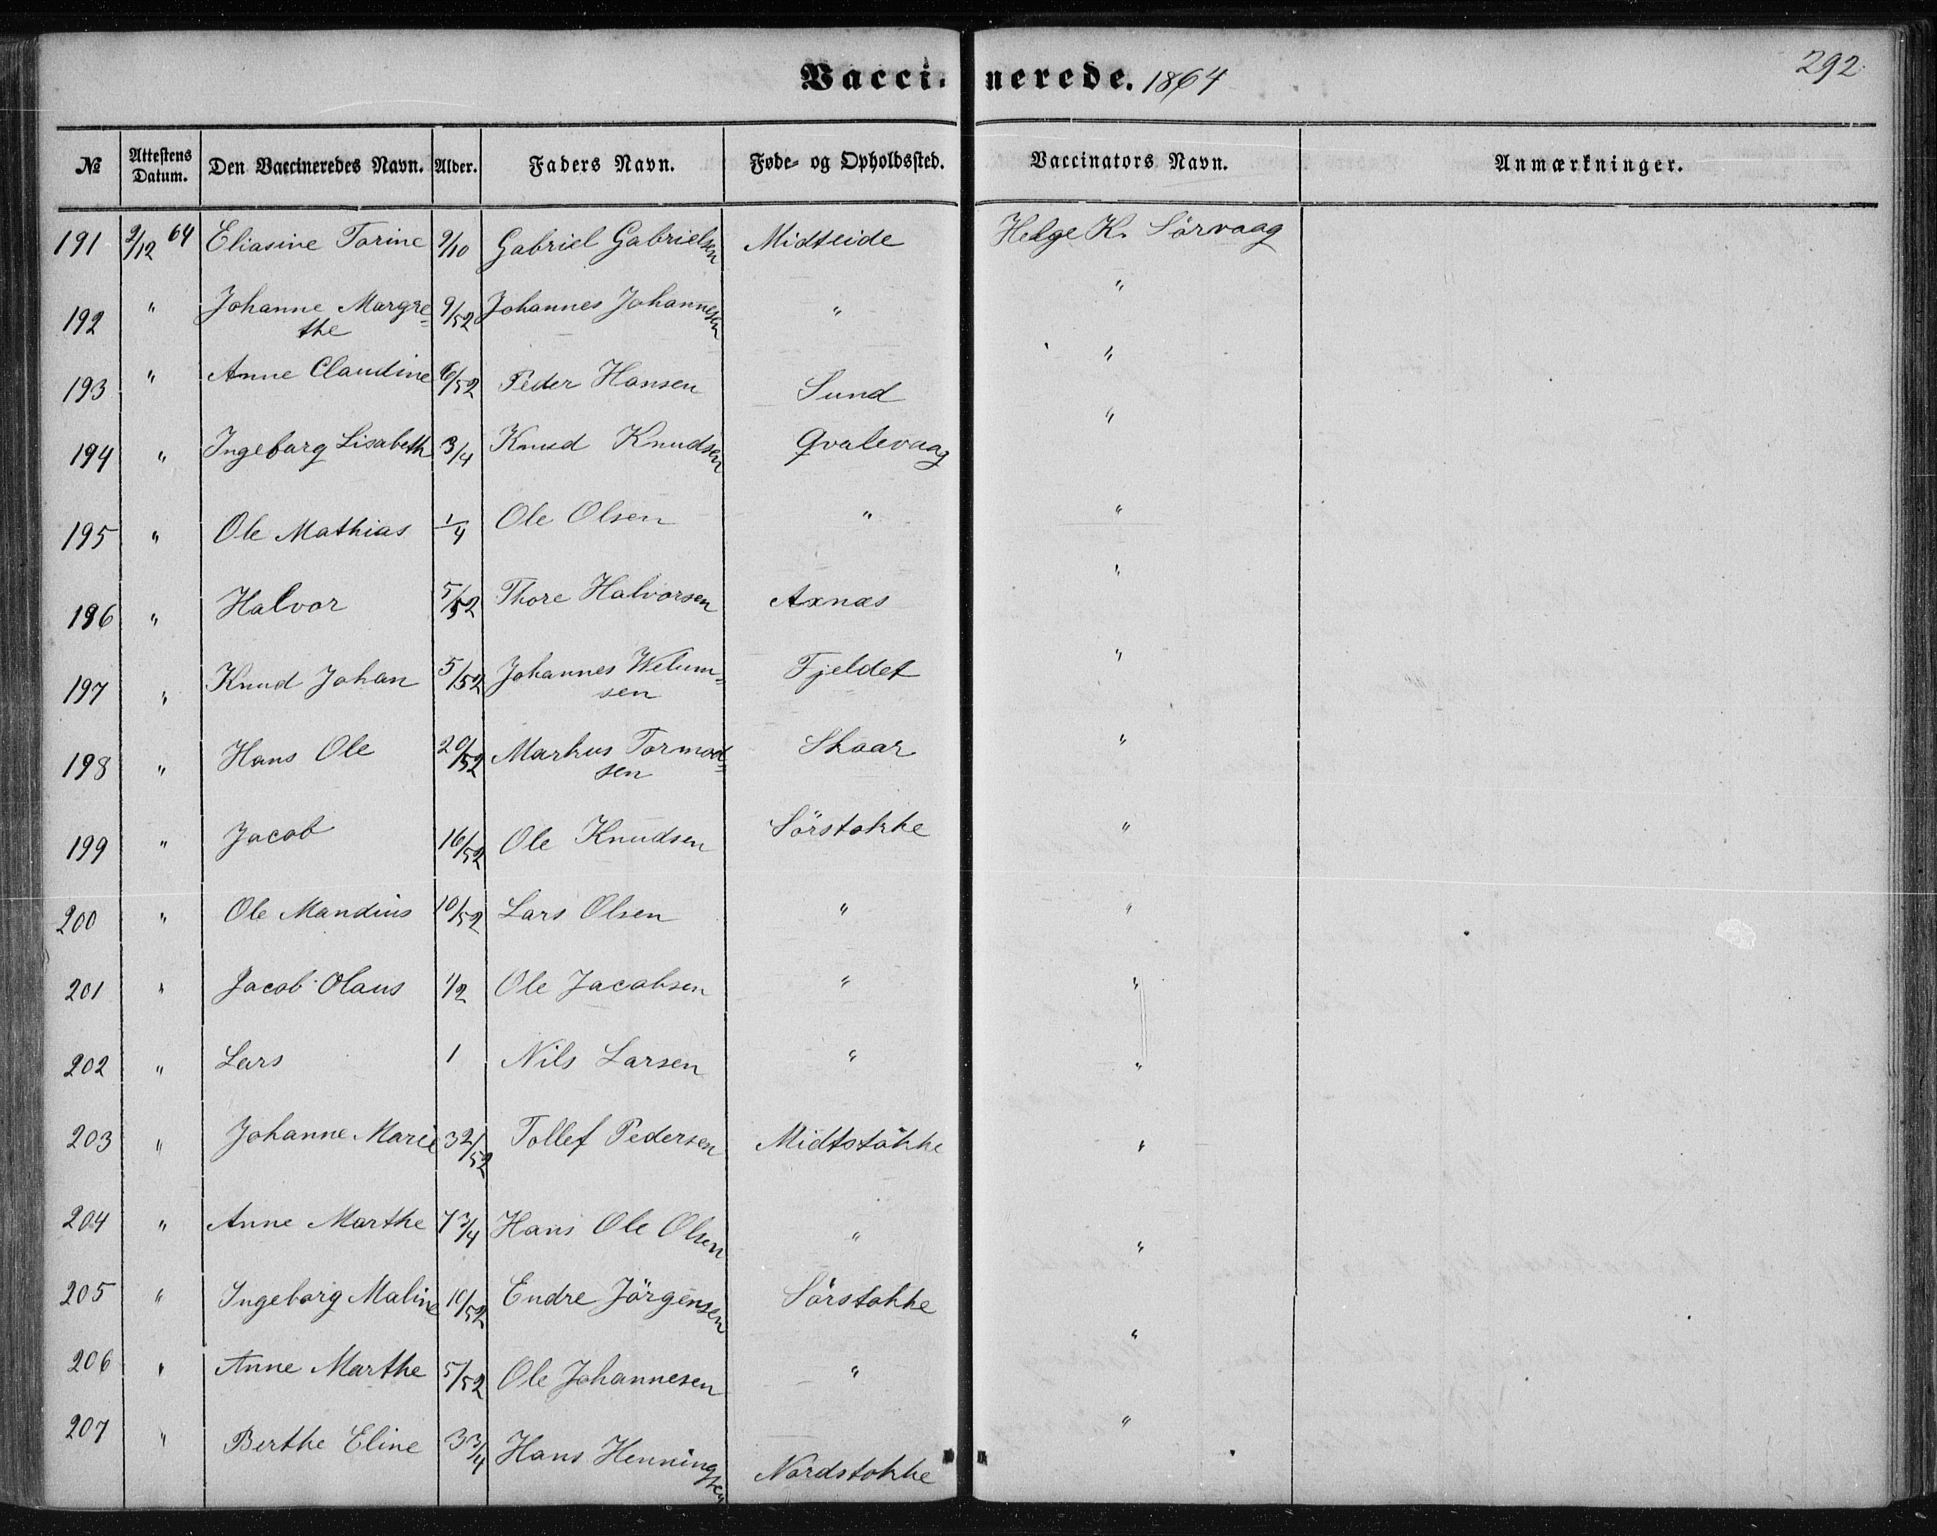 Vaccinerede. 1864 292.
№ Attestens Datum. Den Vaccineredes Navn. Alder. Faders Navn. Føde- og Opholdssted. Vaccinators Navn. Anmærkninger.
191 2/12 64 Eliasine Torine 9/10 Gabriel Gabrielsen Midteide Helge K. Sörvaag
192 " Johanne Margre-
the 9/52 Johannes Johannesen " "
193 " Anne Claudine 6/52 Peder Hansen Sund "
194 " Ingeborg Lisabeth 3/4 Knud Knudsen Qvalevaag "
195 " Ole Mathias 1/4 Ole Olsen " "
196 " Halvor 5/52 Thore Halvorsen Axnæs "
197 " Knud Johan 5/52 Johannes Welum-
sen Fjeldet "
198 " Hans Ole 20/52 Markus Tormod-
sen Skaar "
199 " Jacob 16/52 Ole Knudsen Sörstokke "
200 " Ole Mandius 10/52 Lars Olsen " "
201 " Jacob Olaus 1/2 Ole Jacobsen " "
202 " Lars 1 Nils Larsen " "
203 " Johanne Marie 32/52 Tollef Pedersen Midtstokke "
204 " Anne Marthe 7 3/4 Hans Ole Olsen " "
205 " Ingeborg Maline 10/52 Endre Jörgensen Sörstokke "
206 " Anne Marthe 5/52 Ole Johannesen " "
207 " Berthe Eline 3 3/4 Hans Henningsen Nordstokke